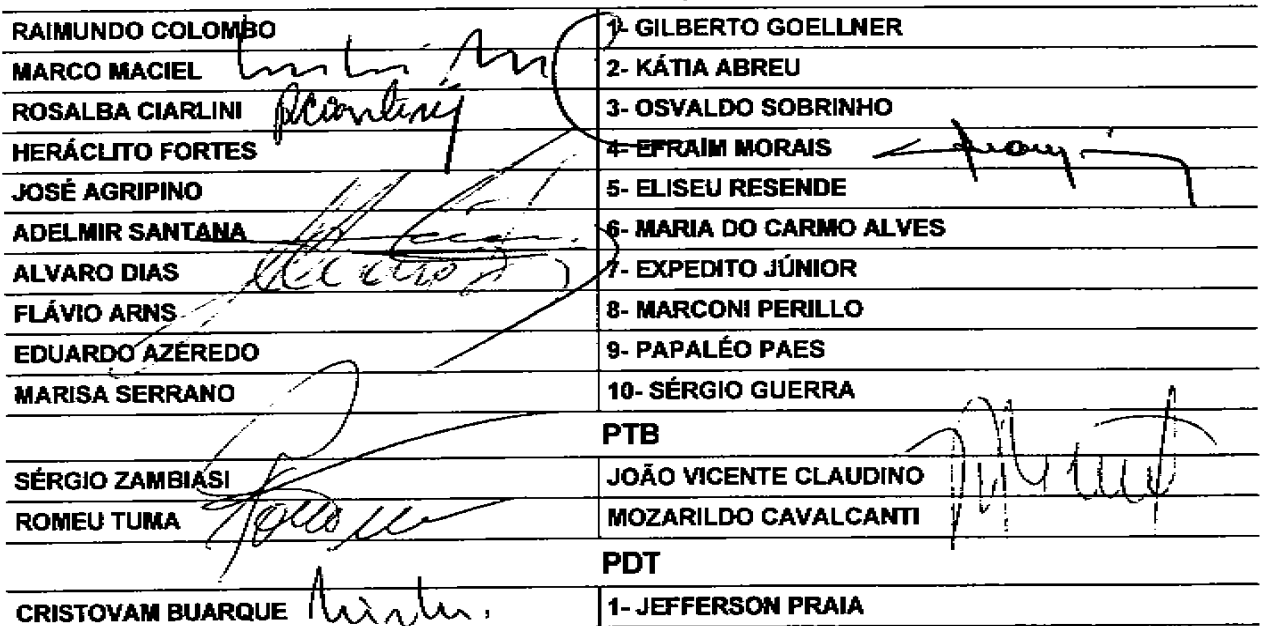 RAIMUNDO COLOMBO 1- GILBERTO GOELLNER
MARCO MACIEL 2- KÁTIA ABREU
ROSALBA CIARLINI RCiarlini 3- OSVALDO SOBRINHO
HERÁCLITO FORTES 4- EFRAÍM MORAIS
JOSÉ AGRIPINO 5- ELISEU RESENDE
ADELMIR SANTANA 6- MARIA DO CARMO ALVES
ALVARO DIAS 7- EXPEDITO JÚNIOR
FLÁVIO ARNS 8- MARCONI PERILLO
EDUARDO AZEREDO 9- PAPALÉO PAES
MARISA SERRANO 10- SÉRGIO GUERRA
PTB
SÉRGIO ZAMBIASI JOÃO VICENTE CLAUDINO
ROMEU TUMA MOZARILDO CAVALCANTI
PDT
CRISTOVAM BUARQUE 1- JEFFERSON PRAIA